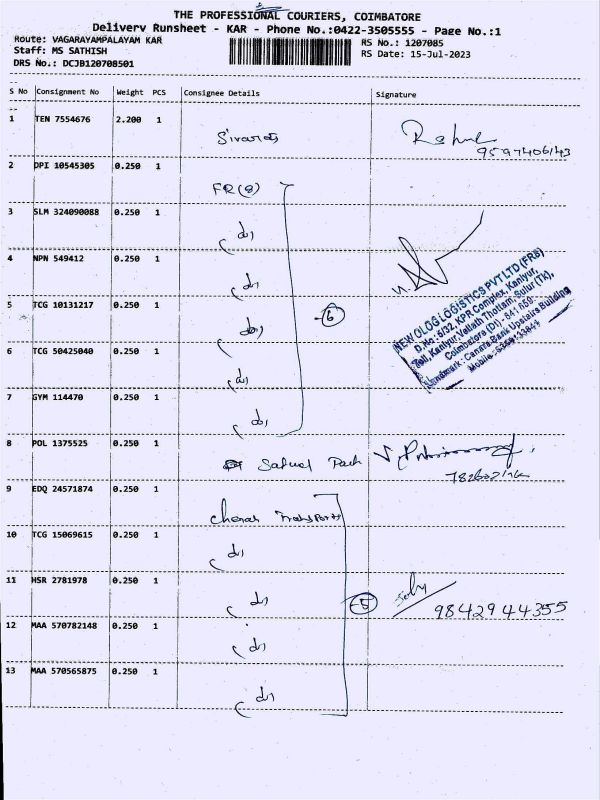 THE PROFESSIONAL COURIERS, COIMBATORE
Delivery Runsheet - KAR - Phone No.:0422-3505555 - Page No.:1
Route: VAGARAYAMPALAYAM KAR
RS No.: 1207085
Staff: MS SATHISH
RS Date: 15-Jul-2023
DRS No.: DCJB120708501
S No Consignment No Weight PCS Consignee Details Signature
1 TEN 7554676 2.200 1
9597406143
2 DPI 10545305 0.250 1
FR(8)
3 SLM 324090088 0.250 1
(do)
4 NPN 549412 0.250 1
(do)
5 TCG 10131217 0.250 1
(do)
6
6 TCG 50425040 0.250 1
(do)
7 GYM 114470 0.250 1
(do)
NEW OLOG LOGISTICS PVT LTD (FR8)
D.No: 6/32, KPR Complex, Kaniyur,
Toll, Kaniyur, Vellath Thottam, Sulur (Tk),
Coimbatore (Dt) - 641 659.
Landmark: Canara Bank Upstairs Building
Mobile:
8 POL 1375525 0.250 1
9 EDQ 24571874 0.250 1
Cheran Transports
10 TCG 15069615 0.250 1
(do)
11 HSR 2781978 0.250 1
(do)
5
9842944355
12 MAA 570782148 0.250 1
(do)
13 MAA 570565875 0.250 1
(do)